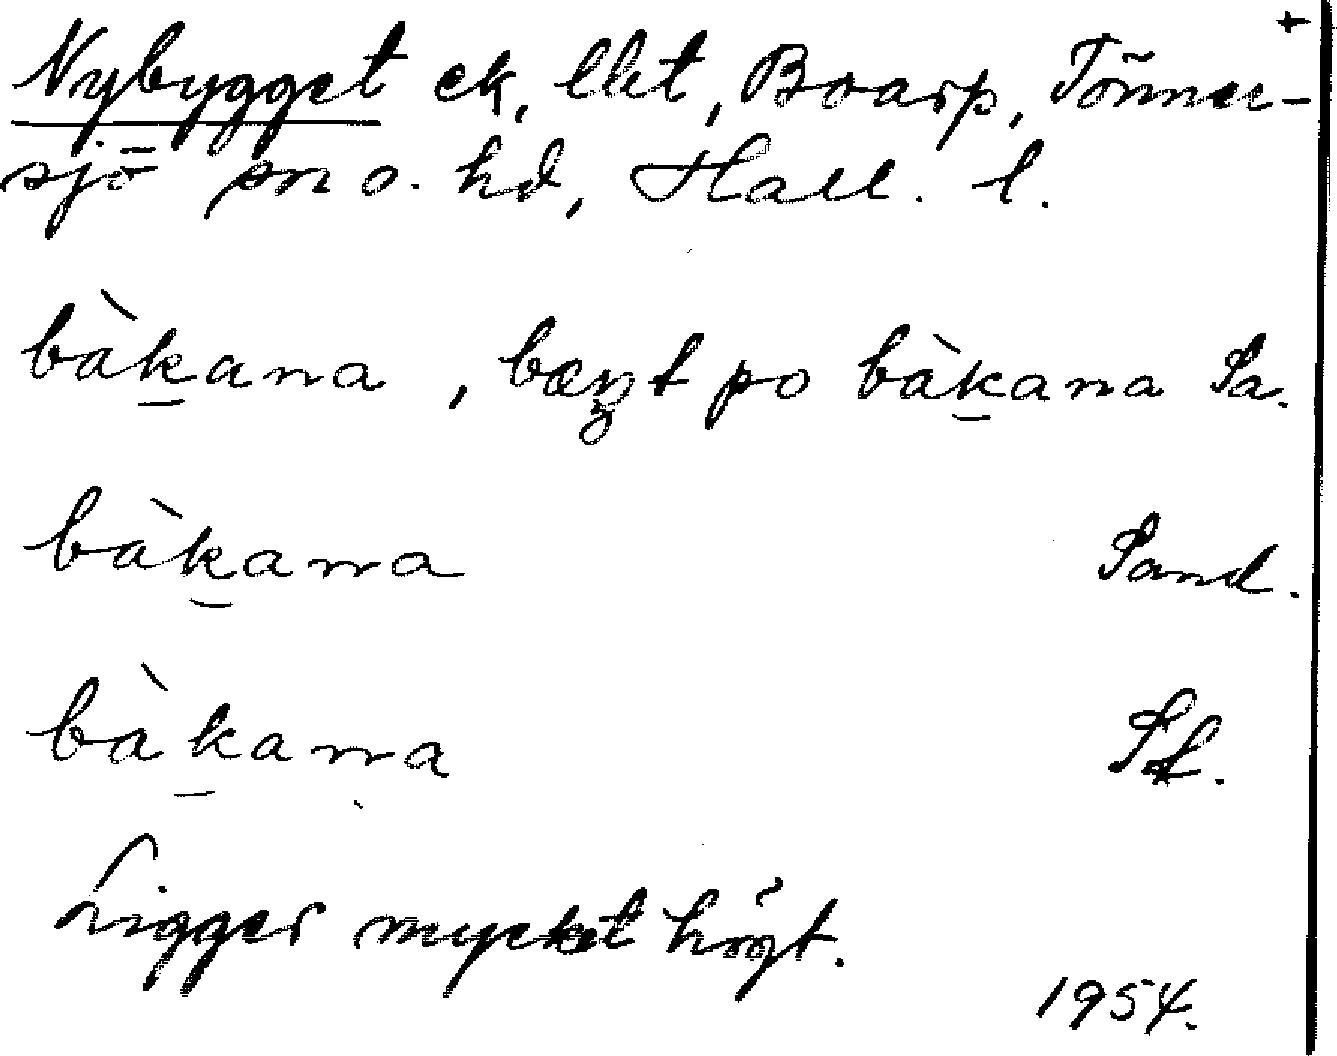 +
Nybygget ek, lht, Boarp, Tönner-
sjö sn o. hd, Hall. l.
bàk̠ana, bœŋt po bàk̠ana Sa.
bàk̠ana Sand.
bàk̠ana
Ligger mycket högt.
1954.